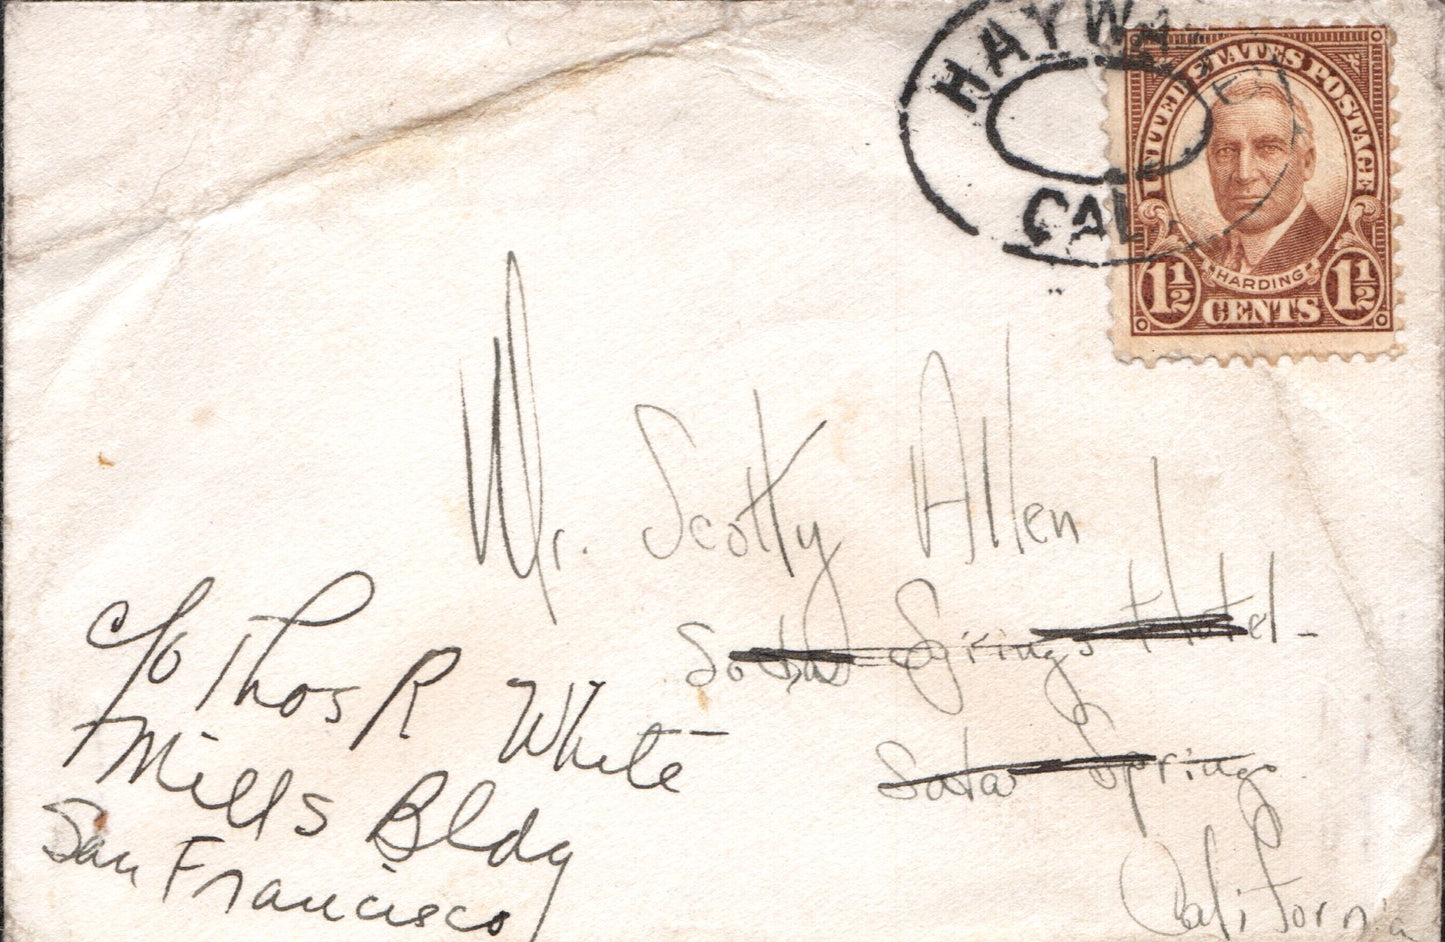 HAYWA
CAL.
UNITED STATES POSTAGE
HARDING
1½ CENTS 1½
Mr. Scotty Allen
Soda Springs Hotel -
Soda Springs
California
c/o Thos R White
Mills Bldg
San Francisco